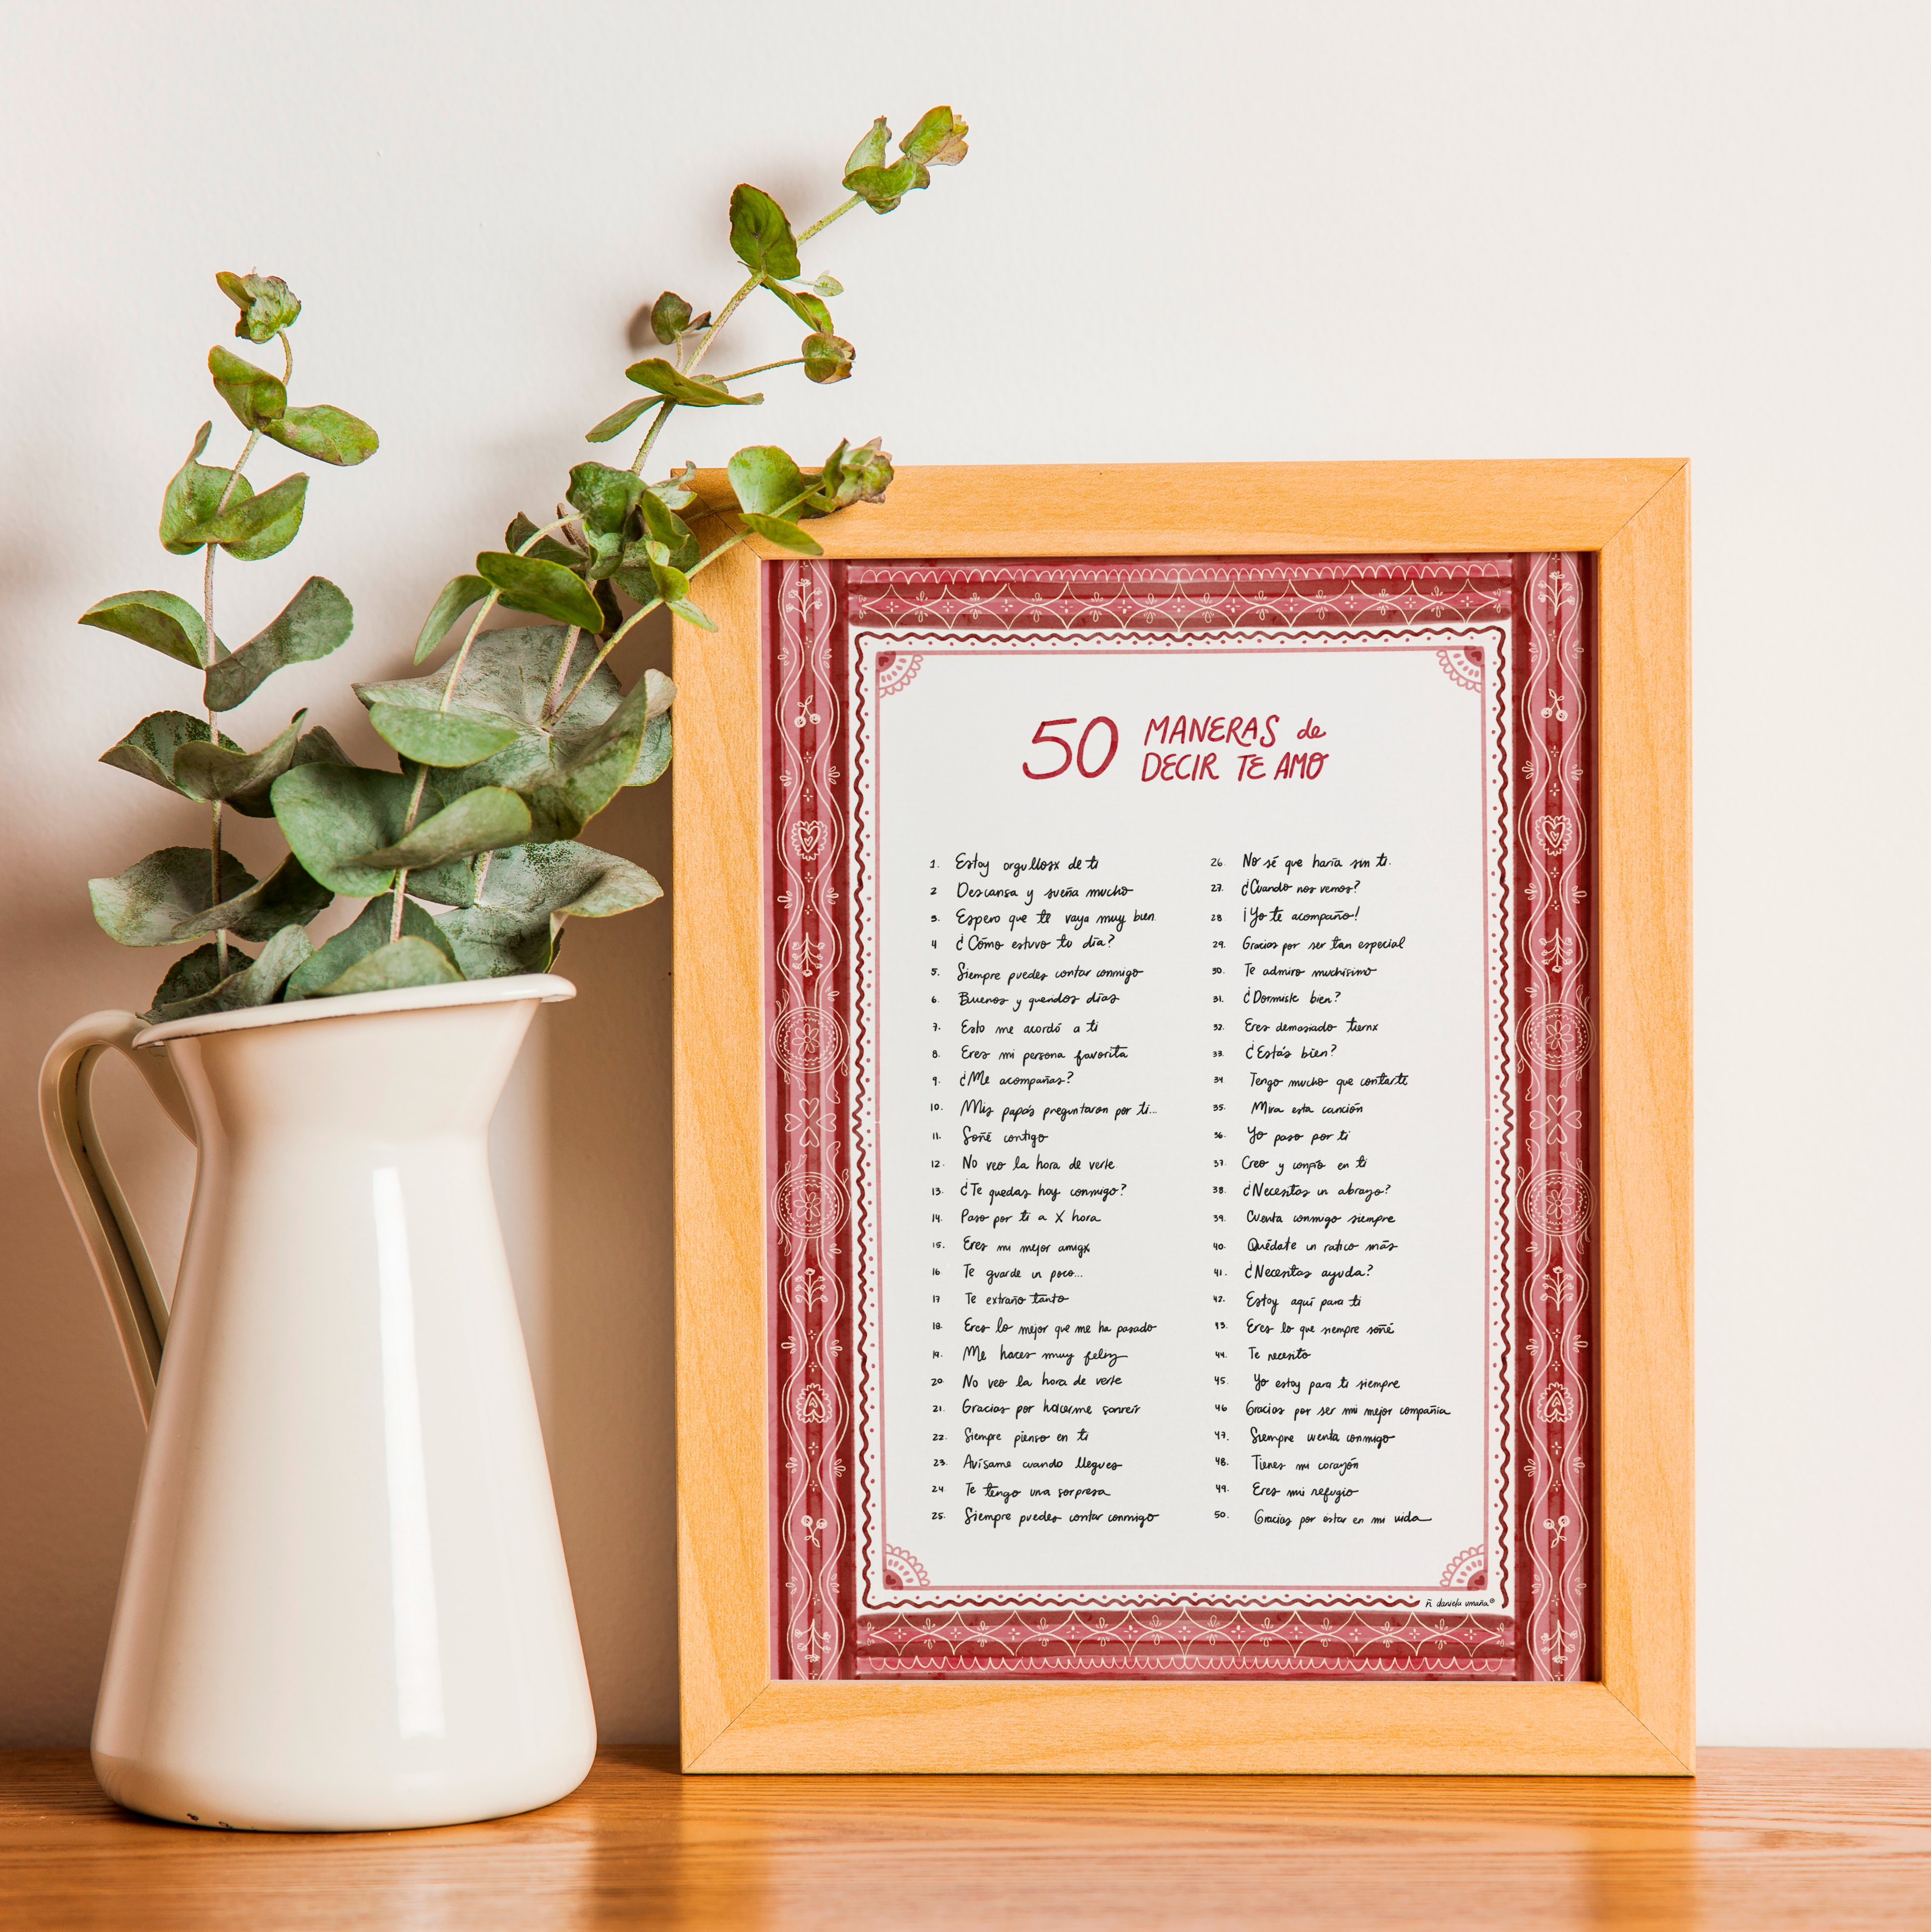 50 MANERAS de
DECIR TE AMO
1. Estoy orgullosx de ti
2 Descansa y sueña mucho
3. Espero que te vaya muy bien
4 ¿Cómo estuvo tu día?
5. Siempre puedes contar conmigo
6. Buenos y queridos días
7. Esto me acordó a ti
8. Eres mi persona favorita
9. ¿Me acompañas?
10. Mis papás preguntaron por ti...
11. Soñé contigo
12. No veo la hora de verte
13. ¿Te quedas hoy conmigo?
14. Paso por ti a X hora
15. Eres mi mejor amigx
16 Te guarde un poco...
17 Te extraño tanto
18. Eres lo mejor que me ha pasado
19. Me haces muy feliz
20. No veo la hora de verte
21. Gracias por hacerme sonreír
22. Siempre pienso en ti
23. Avísame cuando llegues
24. Te tengo una sorpresa
25. Siempre puedes contar conmigo
26. No sé que haría sin ti.
27. ¿Cuando nos vemos?
28 ¡Yo te acompaño!
29. Gracias por ser tan especial
30. Te admiro muchísimo
31. ¿Dormiste bien?
32. Eres demasiado tiernx
33. ¿Estás bien?
34 Tengo mucho que contarte
35. Mira esta canción
36. Yo paso por ti
37. Creo y confío en ti
38. ¿Necesitas un abrazo?
39. Cuenta conmigo siempre
40. Quédate un ratico más
41. ¿Necesitas ayuda?
42. Estoy aquí para ti
43. Eres lo que siempre soñé
44. Te necesito
45. Yo estoy para ti siempre
46 Gracias por ser mi mejor compañía
47. Siempre cuenta conmigo
48. Tienes mi corazón
49. Eres mi refugio
50. Gracias por estar en mi vida
ñ daniela umaña®